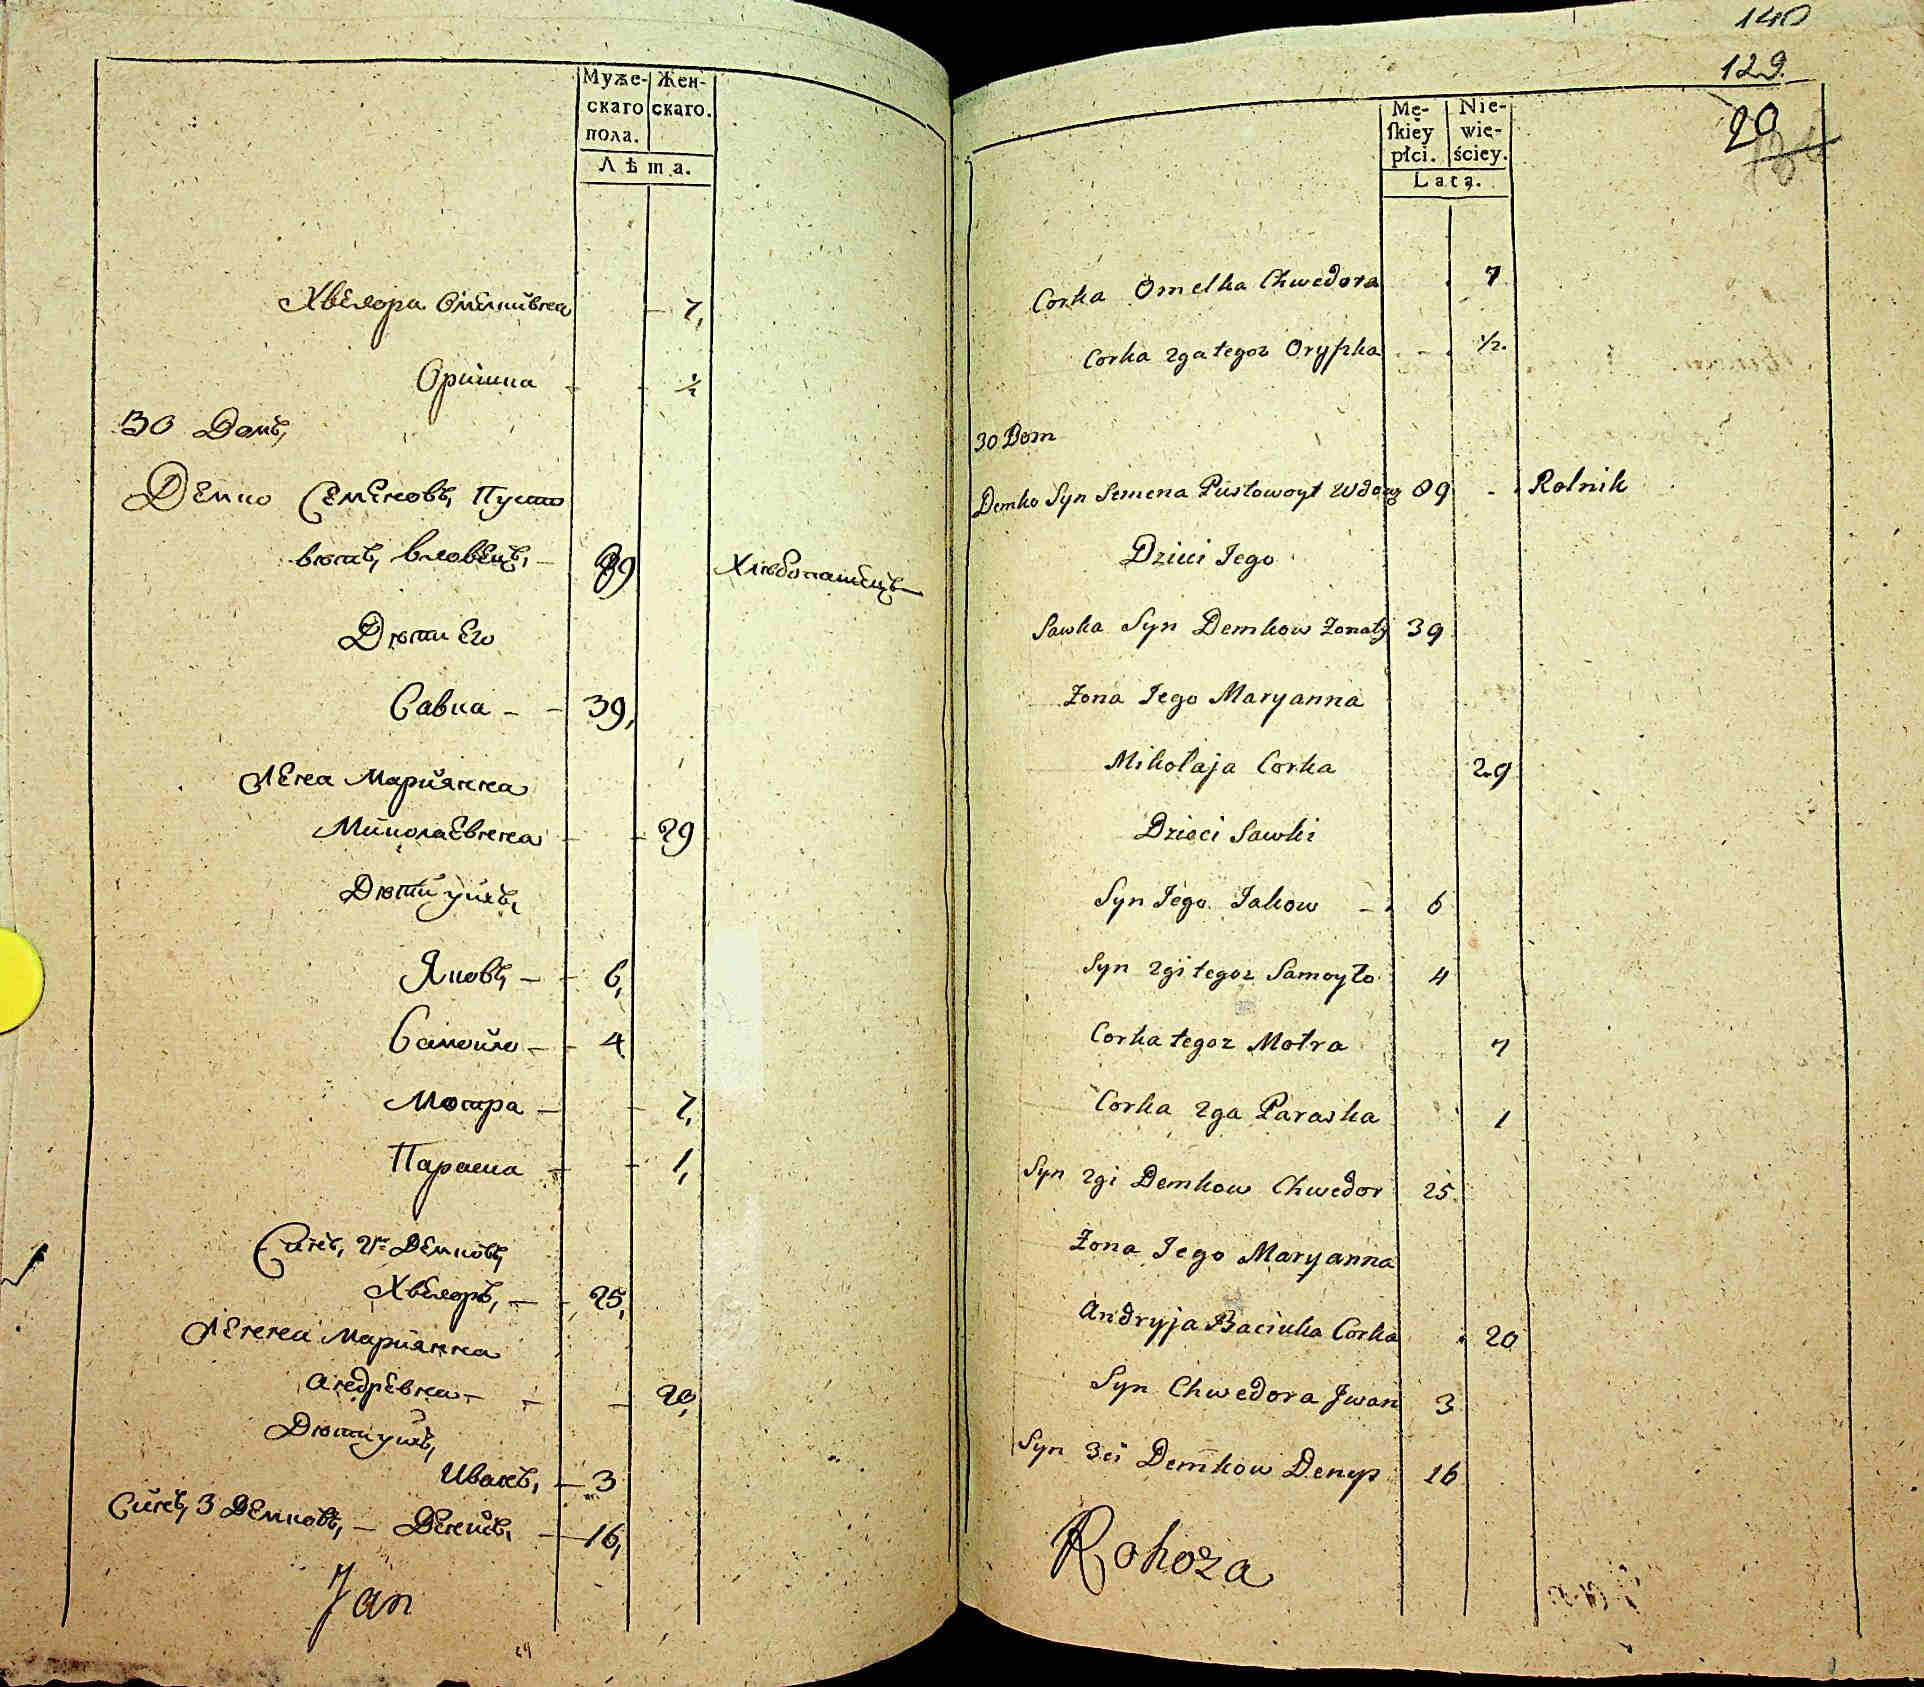 Муже-
скаго
пола.
Жен-
скаго.
Лѣта.
Хведора Омелкивна — 7,
Оришка - - ½
30 Домъ,
Демко Семеновъ, Пусто
вютъ, вдовецъ, — 89 Хлѣбопашецъ
Дѣти Его
Савка — — 39,
Жена Марйянна
Миколаевна — — 29
Дѣтй уйхъ,
Яковъ, — — 6,
Самойло — — 4
Мотра — — 7,
Параска — — 1,
Сынъ, 2й Демковъ,
Хведоръ, — — 25,
Жена Марйянна
Андрѣевна — — — 20,
Дѣти уихъ,
Иванъ, — 3
Сынъ, 3 Демковъ, — Денисъ, — 16,
Jan
140
129.
20
Mę-
ſkiey
płci.
Nie-
wie-
ściey.
Lata.
Corka Omelka Chwedora . 7
Corka 2ga tegoz Oryszka - . ½.
30 Dom
Demko Syn Semena Pustowoyt Wdowz 89 - . Rolnik
Dzieci Jego
Sawka Syn Demkow Zonaty 39
Zona Jego Maryanna
Mikołaja Corka 29
Dzieci Sawki
Syn Jego Jakow - . 6
Syn 2gi tegoz Samoyło 4
Corka tegoz Motra 7
Corka 2ga Paraska 1
Syn 2gi Demkow Chwedor 25
Zona Jego Maryanna
Andryja Baciuka Corka . 20
Syn Chwedora Jwan 3
Syn 3ci Demkow Denys 16
Rohoza